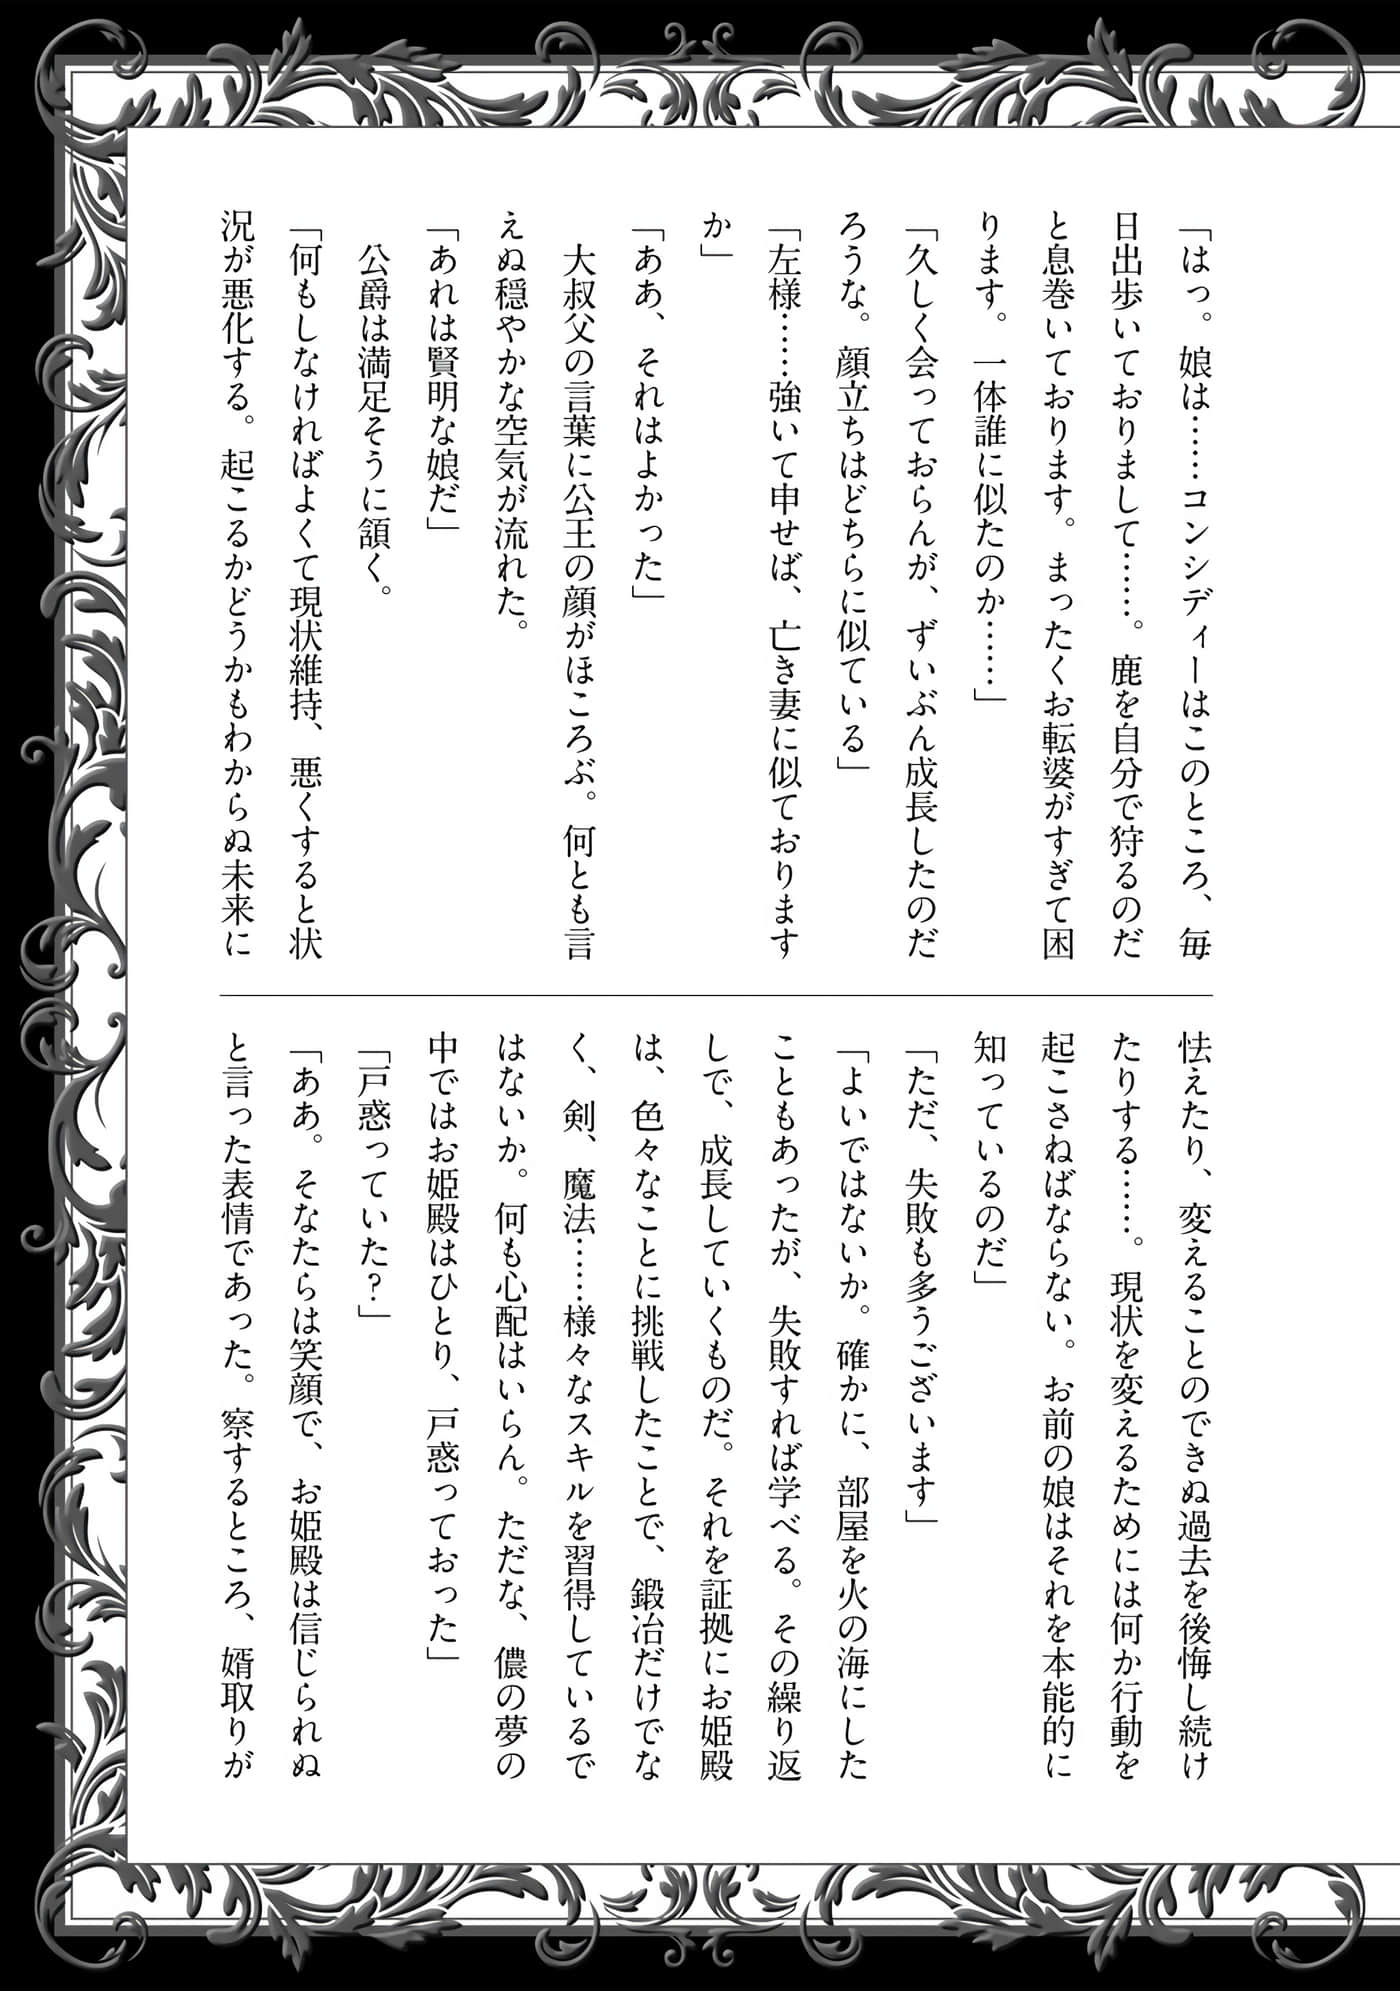 「はっ。娘は……コンシディーはこのところ、毎
日出歩いておりまして……。鹿を自分で狩るのだ
と息巻いております。まったくお転婆がすぎて困
ります。一体誰に似たのか……」
「久しく会っておらんが、ずいぶん成長したのだ
ろうな。顔立ちはどちらに似ている」
「左様……強いて申せば、亡き妻に似ております
か」
「ああ、それはよかった」
　大叔父の言葉に公王の顔がほころぶ。何とも言
えぬ穏やかな空気が流れた。
「あれは賢明な娘だ」
　公爵は満足そうに頷く。
「何もしなければよくて現状維持、悪くすると状
況が悪化する。起こるかどうかもわからぬ未来に
怯えたり、変えることのできぬ過去を後悔し続け
たりする……。現状を変えるためには何か行動を
起こさねばならない。お前の娘はそれを本能的に
知っているのだ」
「ただ、失敗も多うございます」
「よいではないか。確かに、部屋を火の海にした
こともあったが、失敗すれば学べる。その繰り返
しで、成長していくものだ。それを証拠にお姫殿
は、色々なことに挑戦したことで、鍛冶だけでな
く、剣、魔法……様々なスキルを習得しているで
はないか。何も心配はいらん。ただな、儂の夢の
中ではお姫殿はひとり、戸惑っておった」
「戸惑っていた？」
「ああ。そなたらは笑顔で、お姫殿は信じられぬ
と言った表情であった。察するところ、婿取りが